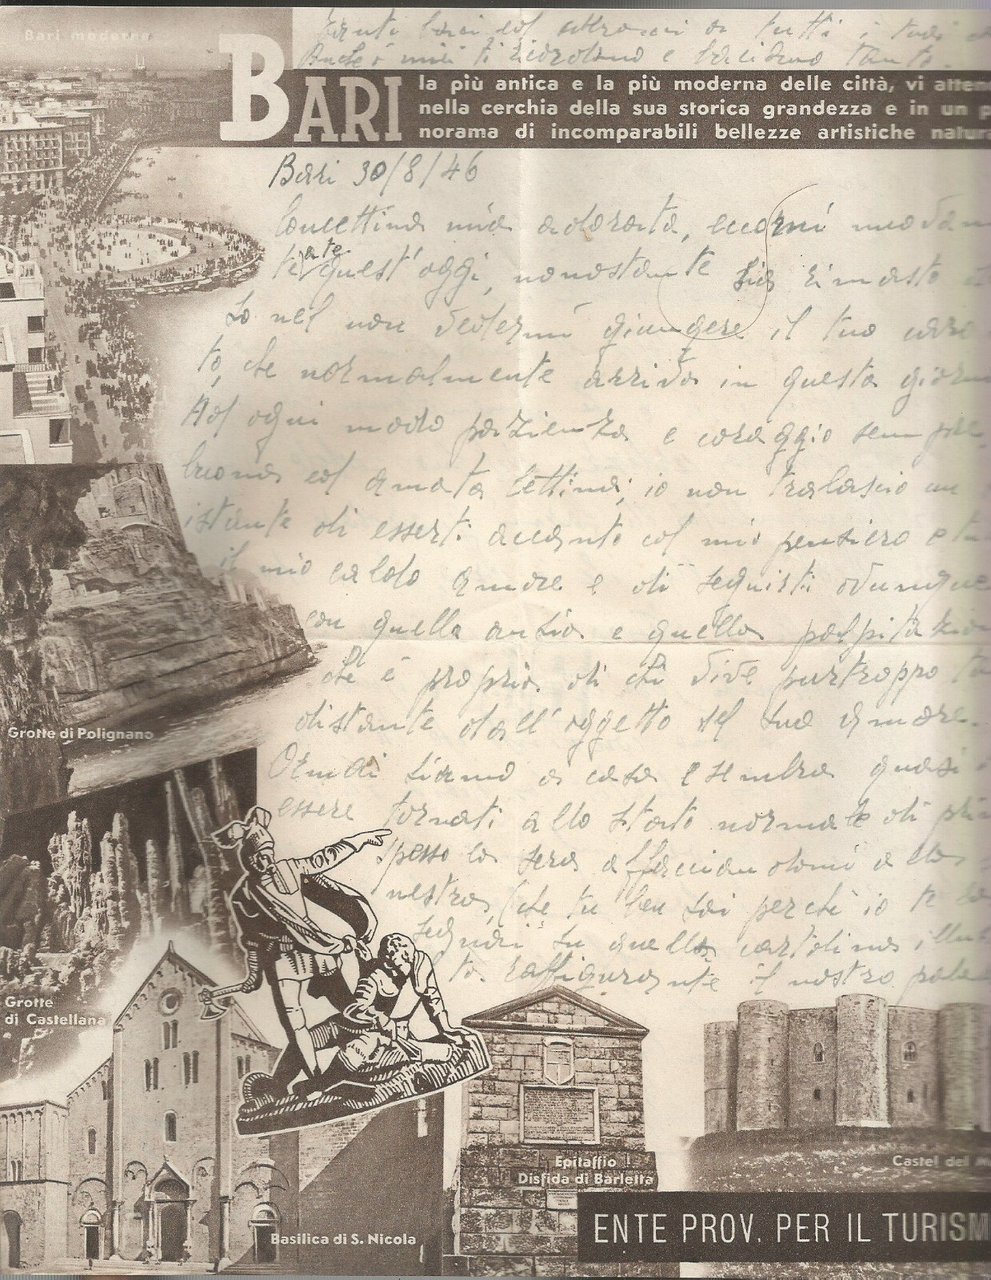 Bari moderna
tanti baci ed abbracci di tutti i tuoi
Anche i miei ti ricordano e baciano tanto.
BARI
la più antica e la più moderna delle città, vi atten
nella cerchia della sua storica grandezza e in un p
norama di incomparabili bellezze artistiche natura
Bari 30/8/46
Concettina mia adorata, eccomi nuovam
te a te quest'oggi, nonostante sia rimasto
lo nel non vedermi giungere il tuo
to, che normalmente arriva in questo giorn
Ad ogni modo pazienza e coraggio sempre
buona ed amata Cettina; io non tralascio un
istante di esserti accanto col mio pensiero e tu
il mio caldo amore e di seguirti dovunque
con quella ansia e quella palpitazion
che è propria di chi vive purtroppo
distante dall'oggetto del suo amore.
Ormai siamo a casa e sembra quasi
essere tornati allo stato normale di pri
spesso la sera affacciandomi alla
nestra, (che tu ben sai perché io te
segnai su quella cartolina illu
ta raffigurante il nostro pala
Grotte di Polignano
Grotte
di Castellana
Basilica di S. Nicola
Epitaffio
Disfida di Barletta
Castel del M
ENTE PROV. PER IL TURISM